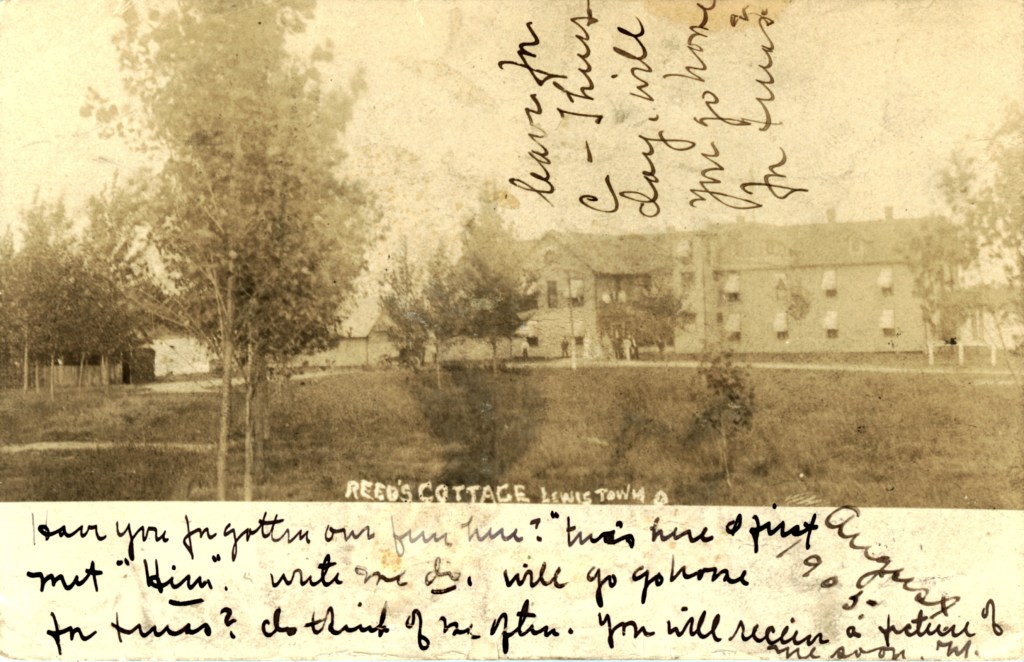 leave for
C - Thurs
day, will
you go home
for Xmas?
REED'S COTTAGE LEWISTOWN O
Have you forgotten our fun here? "twas here I first
met "Him". write me do. will go home
for Xmas? do think of me often. You will receive a picture of
me soon. M.
August
1905-